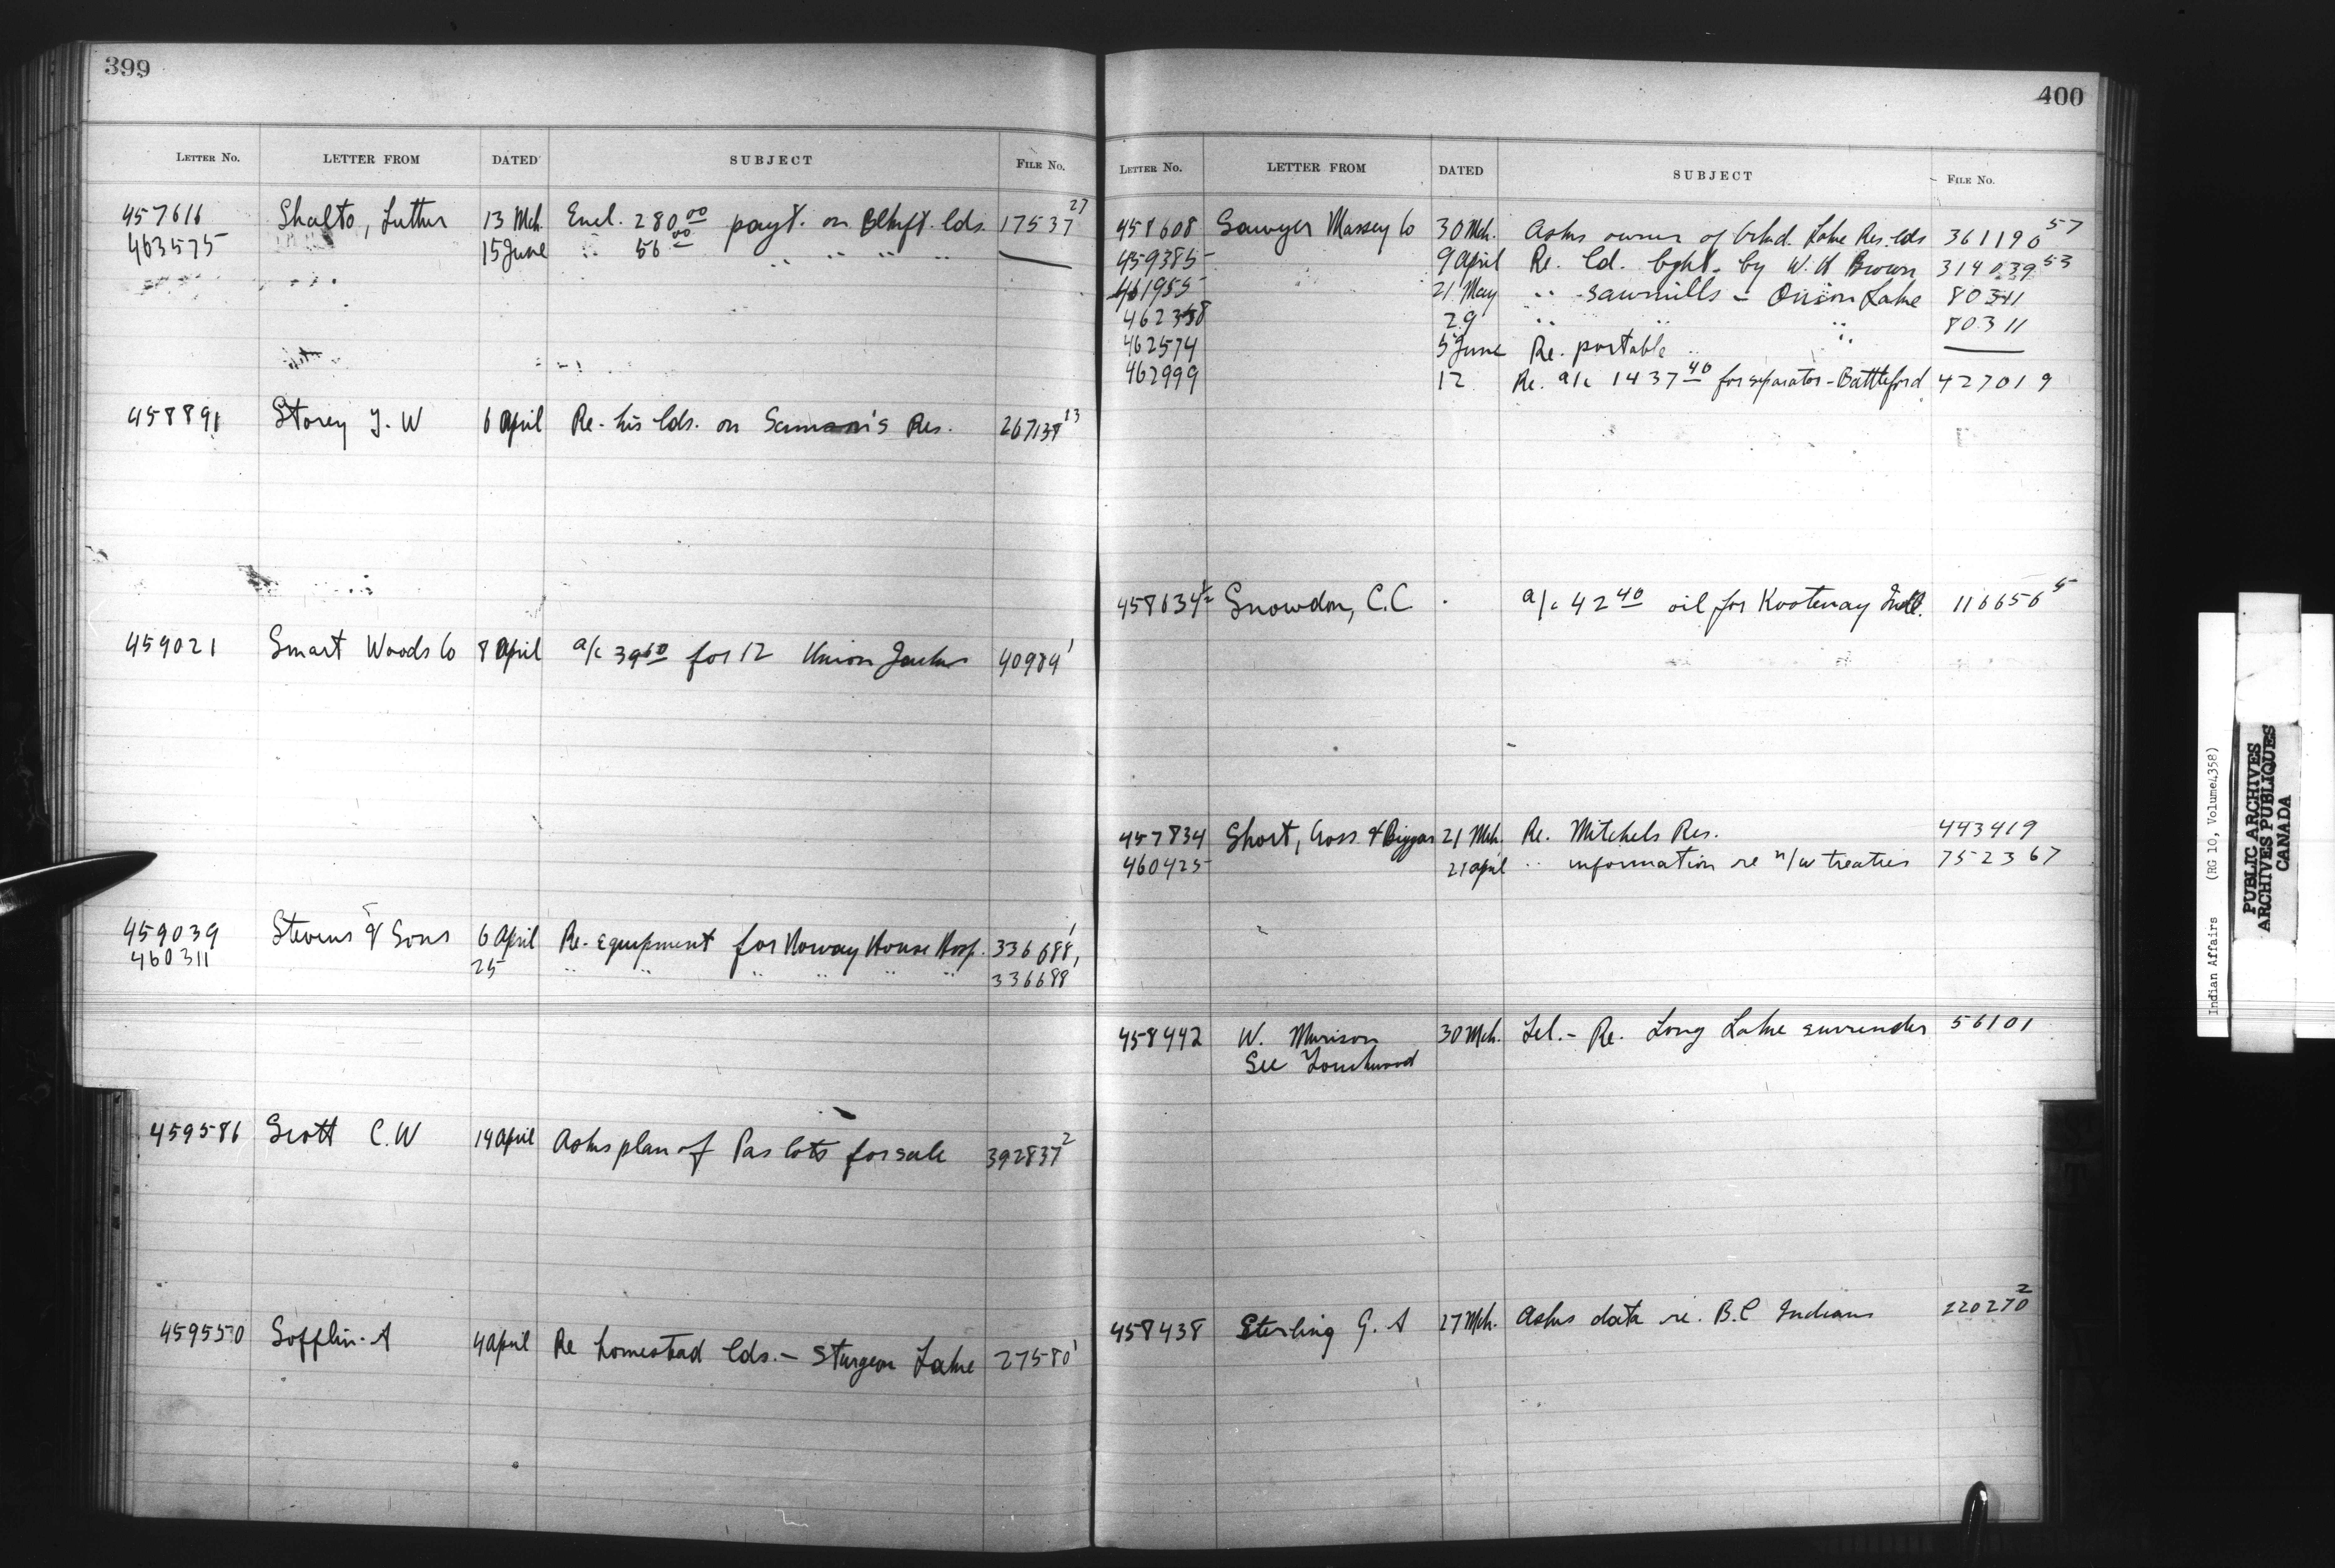 399
LETTER No. LETTER FROM DATED SUBJECT FILE No.
457616 Shalto, Luther 13 Mch. Encl. 280.00 payt. on Blkft. lds. 17537 27
463575 15 June " 56 00 " " " "
458891 Storey J. W 6 April Re. his lds. on Samson's Res. 267138 13
459021 Smart Woods Co 8 April a/c 39 60 for 12 Union Jacks 40984 1
459039 Stevens & Sons 6 April Re. equipment for Norway House Hosp. 336688 1
460311 25 " " " " " " 336688 1
459586 Scott C. W 19 April Asks plan of Pas lots for sale 392837 2
459550 Sofflin. A 4 April Re homestead lds. - Sturgeon Lake 27580 1
400
LETTER No. LETTER FROM DATED SUBJECT FILE No.
458608 Sawyer Massey Co 30 Mch. Asks owner of Lake Res. lds 361190 57
459385 9 April Re. ld. bght. by W. H Brown 314039 53
461955 21 May " sawmills - Onion Lake 80311
462358 29 " " " 80311
462574 5 June Re. portable " "
462999 12 Re. a/c 1437 40 for separator - Battleford 427019
458634½ Snowdon, C.C. a/c 42 40 oil for Kootenay Indl. 116656 5
457834 Short, Cross & Biggar 21 Mch. Re. Mitchels Res. 443419
460425 21 April " information re n/w treaties 752367
458442 W. Murison 30 Mch. Tel. - Re. Long Lake surrender 56101
See Touchwood
458438 Sterling G. A 27 Mch. Asks data re. B.C Indians 220270 2
Indian Affairs (RG 10, Volume 4358)
PUBLIC ARCHIVES
ARCHIVES PUBLIQUES
CANADA